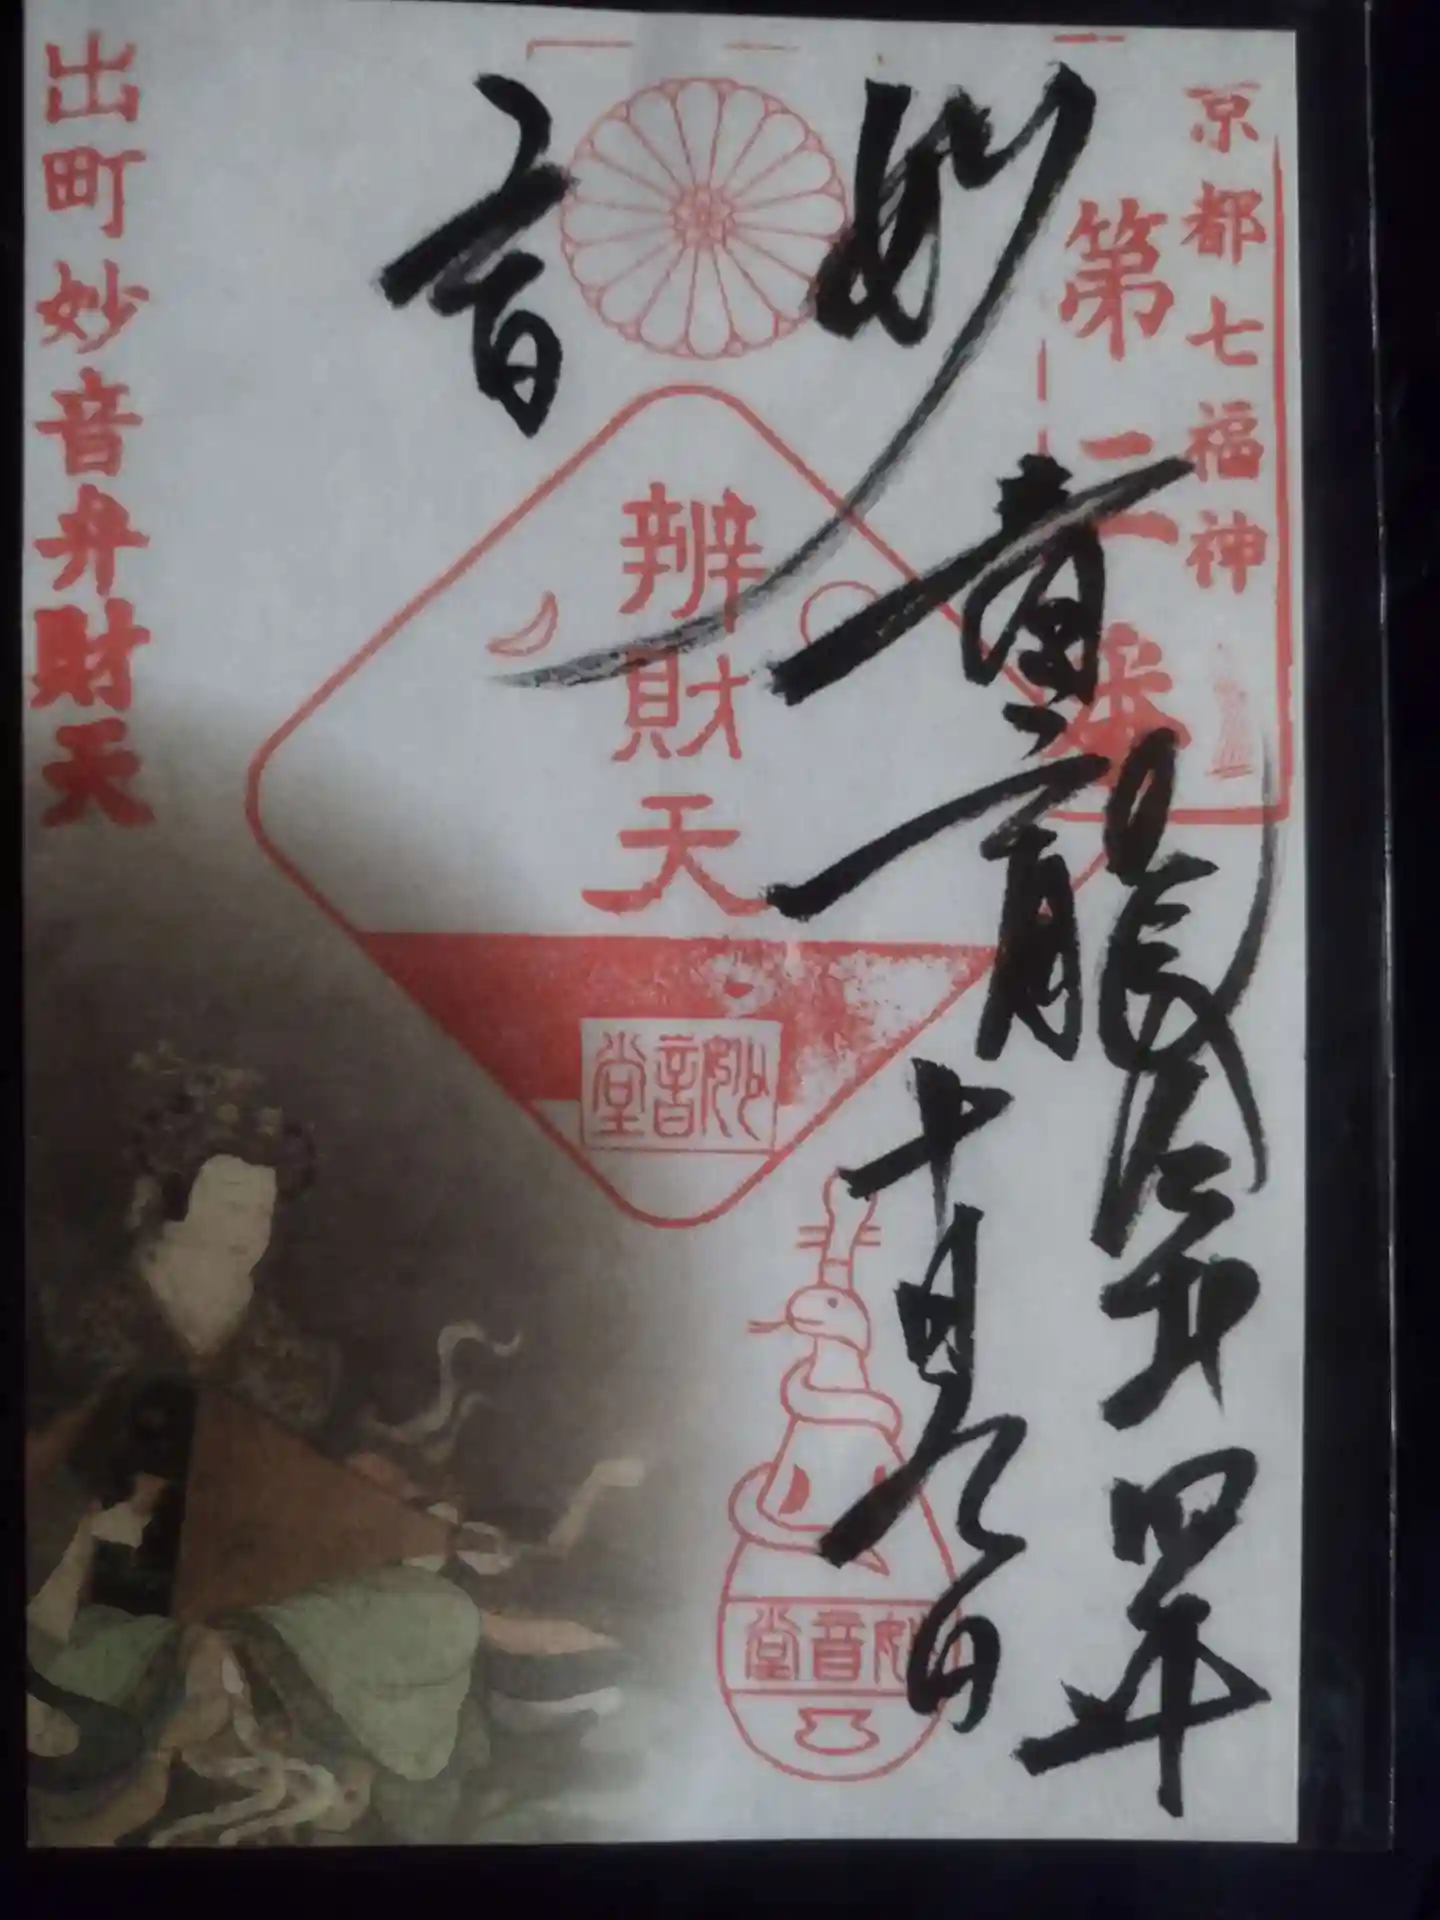 京都七福神
第二番
妙音
青龍
令和四年
十月九日
辨財天
妙音堂
妙音堂
出町妙音弁財天